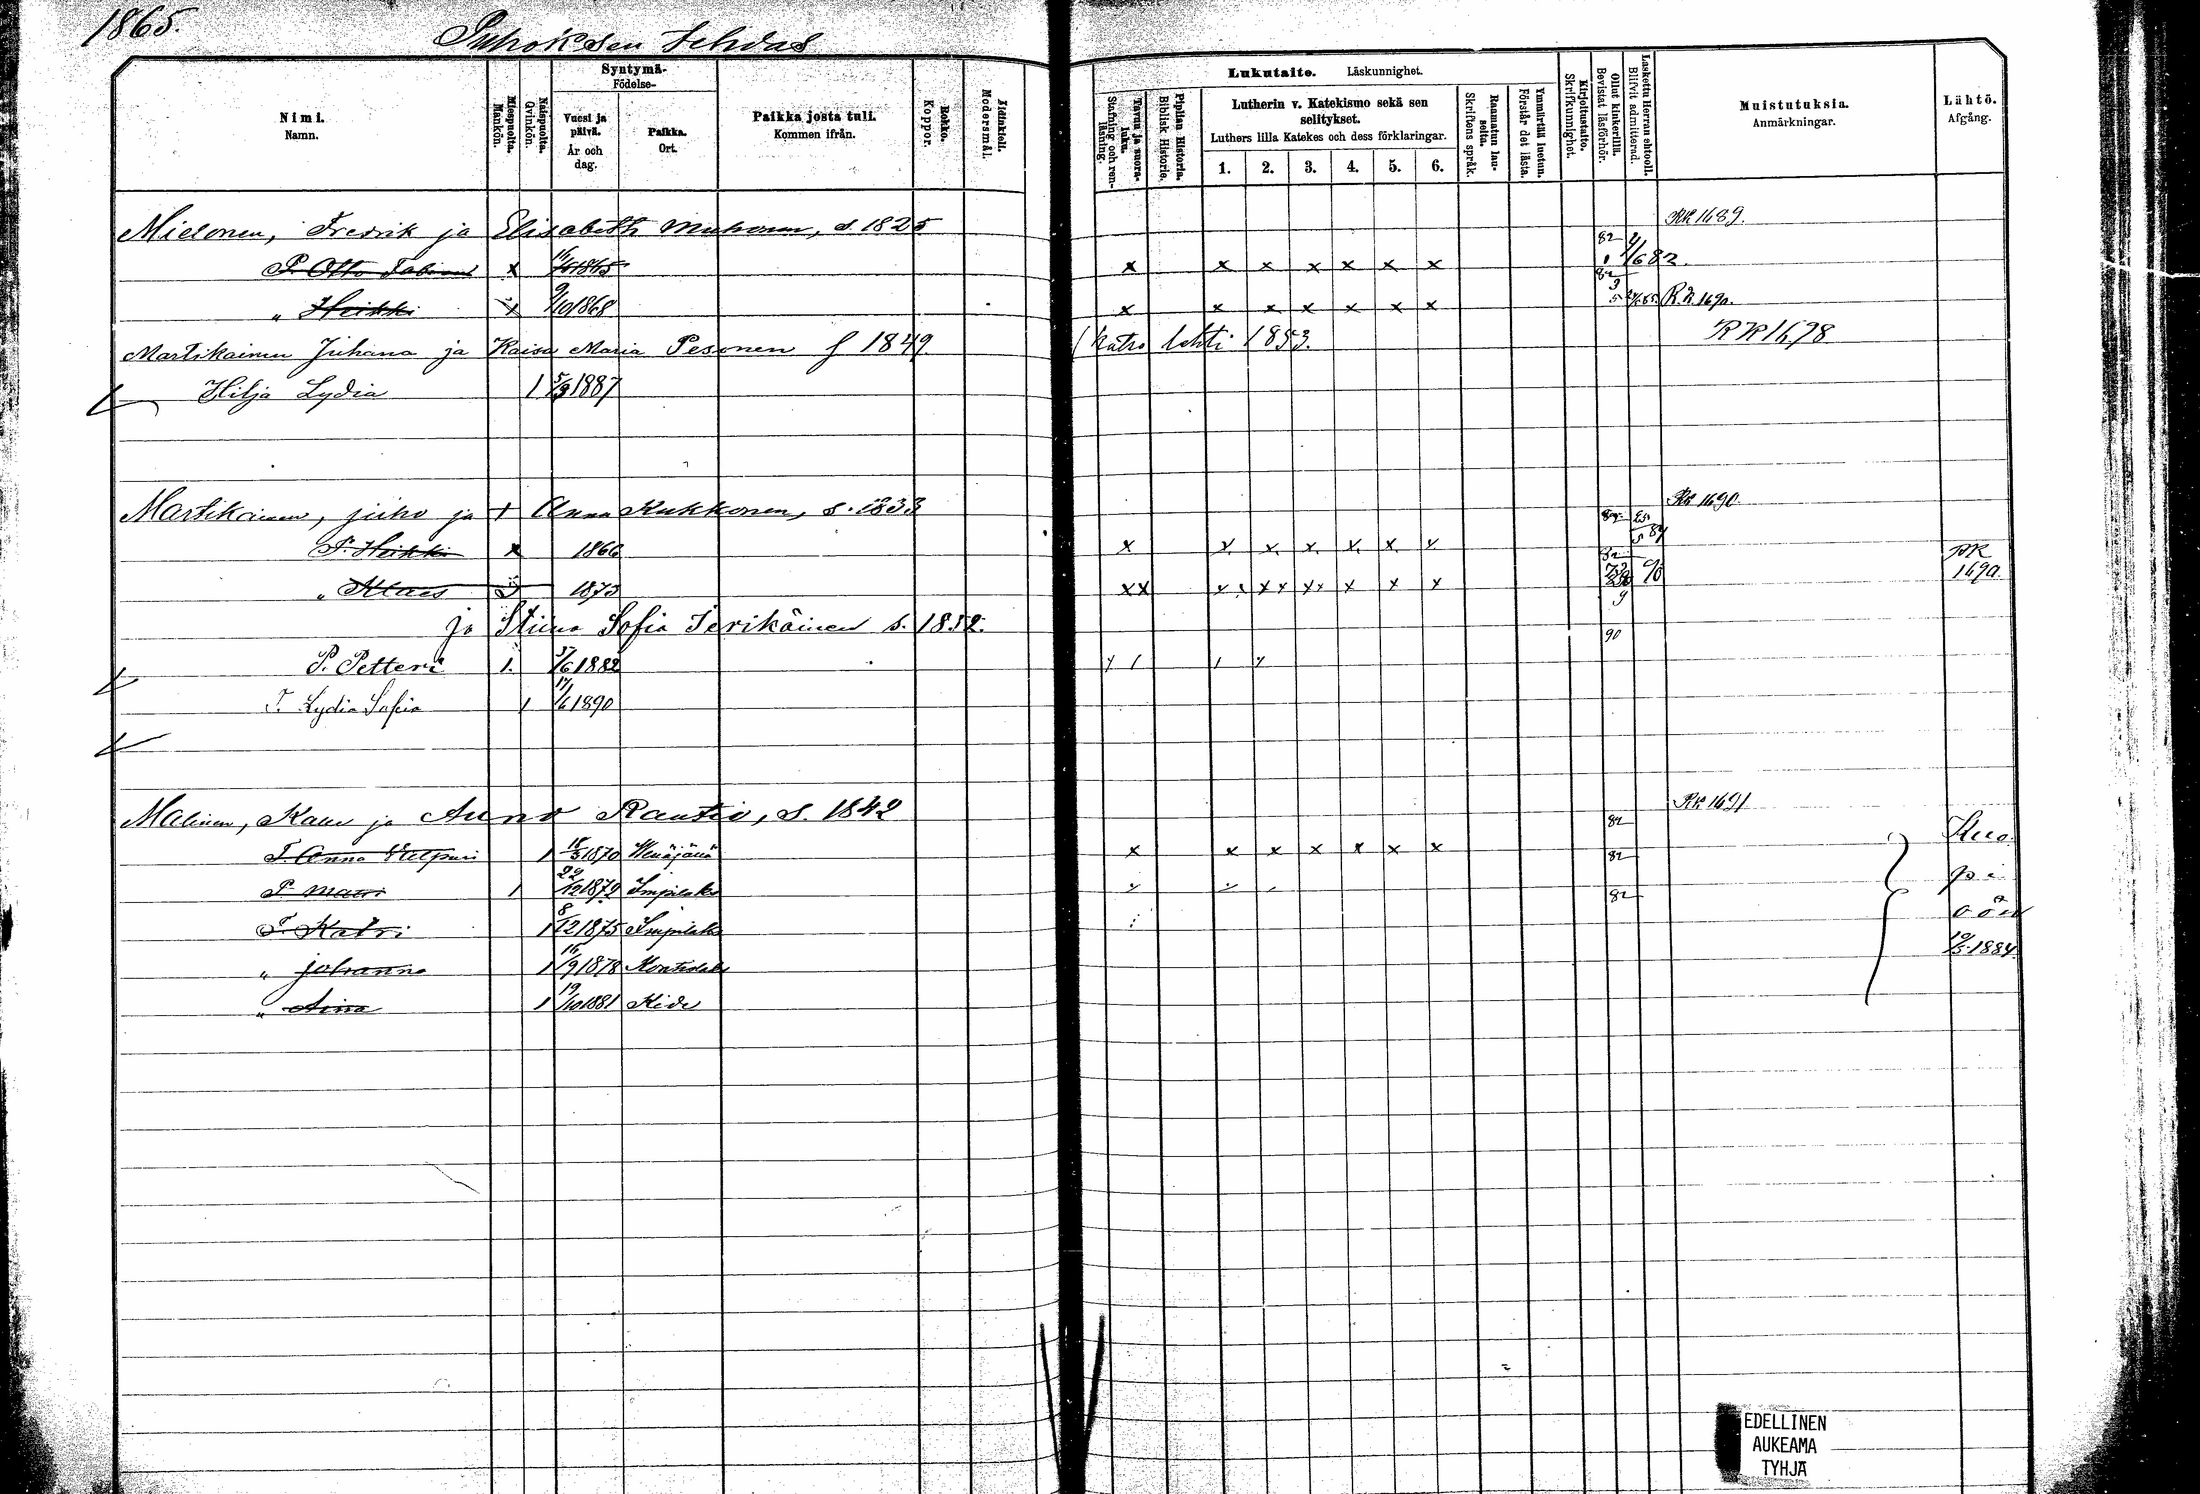 1865.
Puhoksen Tehdas
Nimi. Namn.
Miespuolta. Mankön.
Naispuolta. Qvinkön.
Syntymä- Födelse-
Vuosi ja päivä. År och dag.
Paikka. Ort.
Paikka josta tuli. Kommen ifrån.
Rokko. Koppor.
Äidinkieli. Modersmål.
Lukutaito. Läskunnighet.
Tavuu ja suora-luku. Stafning och ren-läsning.
Piplian Historia. Biblisk Historie.
Lutherin v. Katekismo sekä sen selitykset.
Luthers lilla Katekes och dess förklaringar.
1. 2. 3. 4. 5. 6.
Raamatun lau-seita. Skriftens språk.
Ymmärtää luetun. Förstår det lästa.
Kirjoitustaito. Skrifkunnighet.
Ollut kinkerillä. Bevistat läsförhör.
Laskettu Herran ehtooll. Blifvit admitterad.
Muistutuksia. Anmärkningar.
Lähtö. Afgång.
Mielonen, Fredrik ja Elisabeth Muhonen, s. 1825 RK 1689.
P. Otto Fabian x 1865 x x x x x x x 82 682.
" Heikki x 9/10 1868 x x x x x x x 82 RK 1690.
Martikainen Juhana ja Kaisa Maria Pesonen f 1849. (katso lehti 1853. RK 1678
Hilja Lydia 1 5/9 1887
Martikainen, juho ja + Anna Kukkonen, s. 1833 RK 1690.
P. Heikki x 1866 x x x x x x x
" Klaes 1873 xx x x x x x x x x x RK 1690
ja Stiina Sofia Terikäinen s. 1852. 90
P. Petteri 1. /6 1882
T. Lydia Sofia 1 17/6 1890
Malinen, Kalle ja Anna Rautio, s. 1842 82 RK 1691
T. Anna Helpuri 1 18/3 1870 Wenäjänä x x x x x x x 82 Kuo
P. Matti 1 22/12 1872 Impilaks 82 pi
T. Katri 1 8/12 1875 Impilaks oon
" johanna 1 16/9 1878 Kontiolaks 10/5 1884.
" Aina 1 19/10 1881 Kide
EDELLINEN
AUKEAMA
TYHJÄ